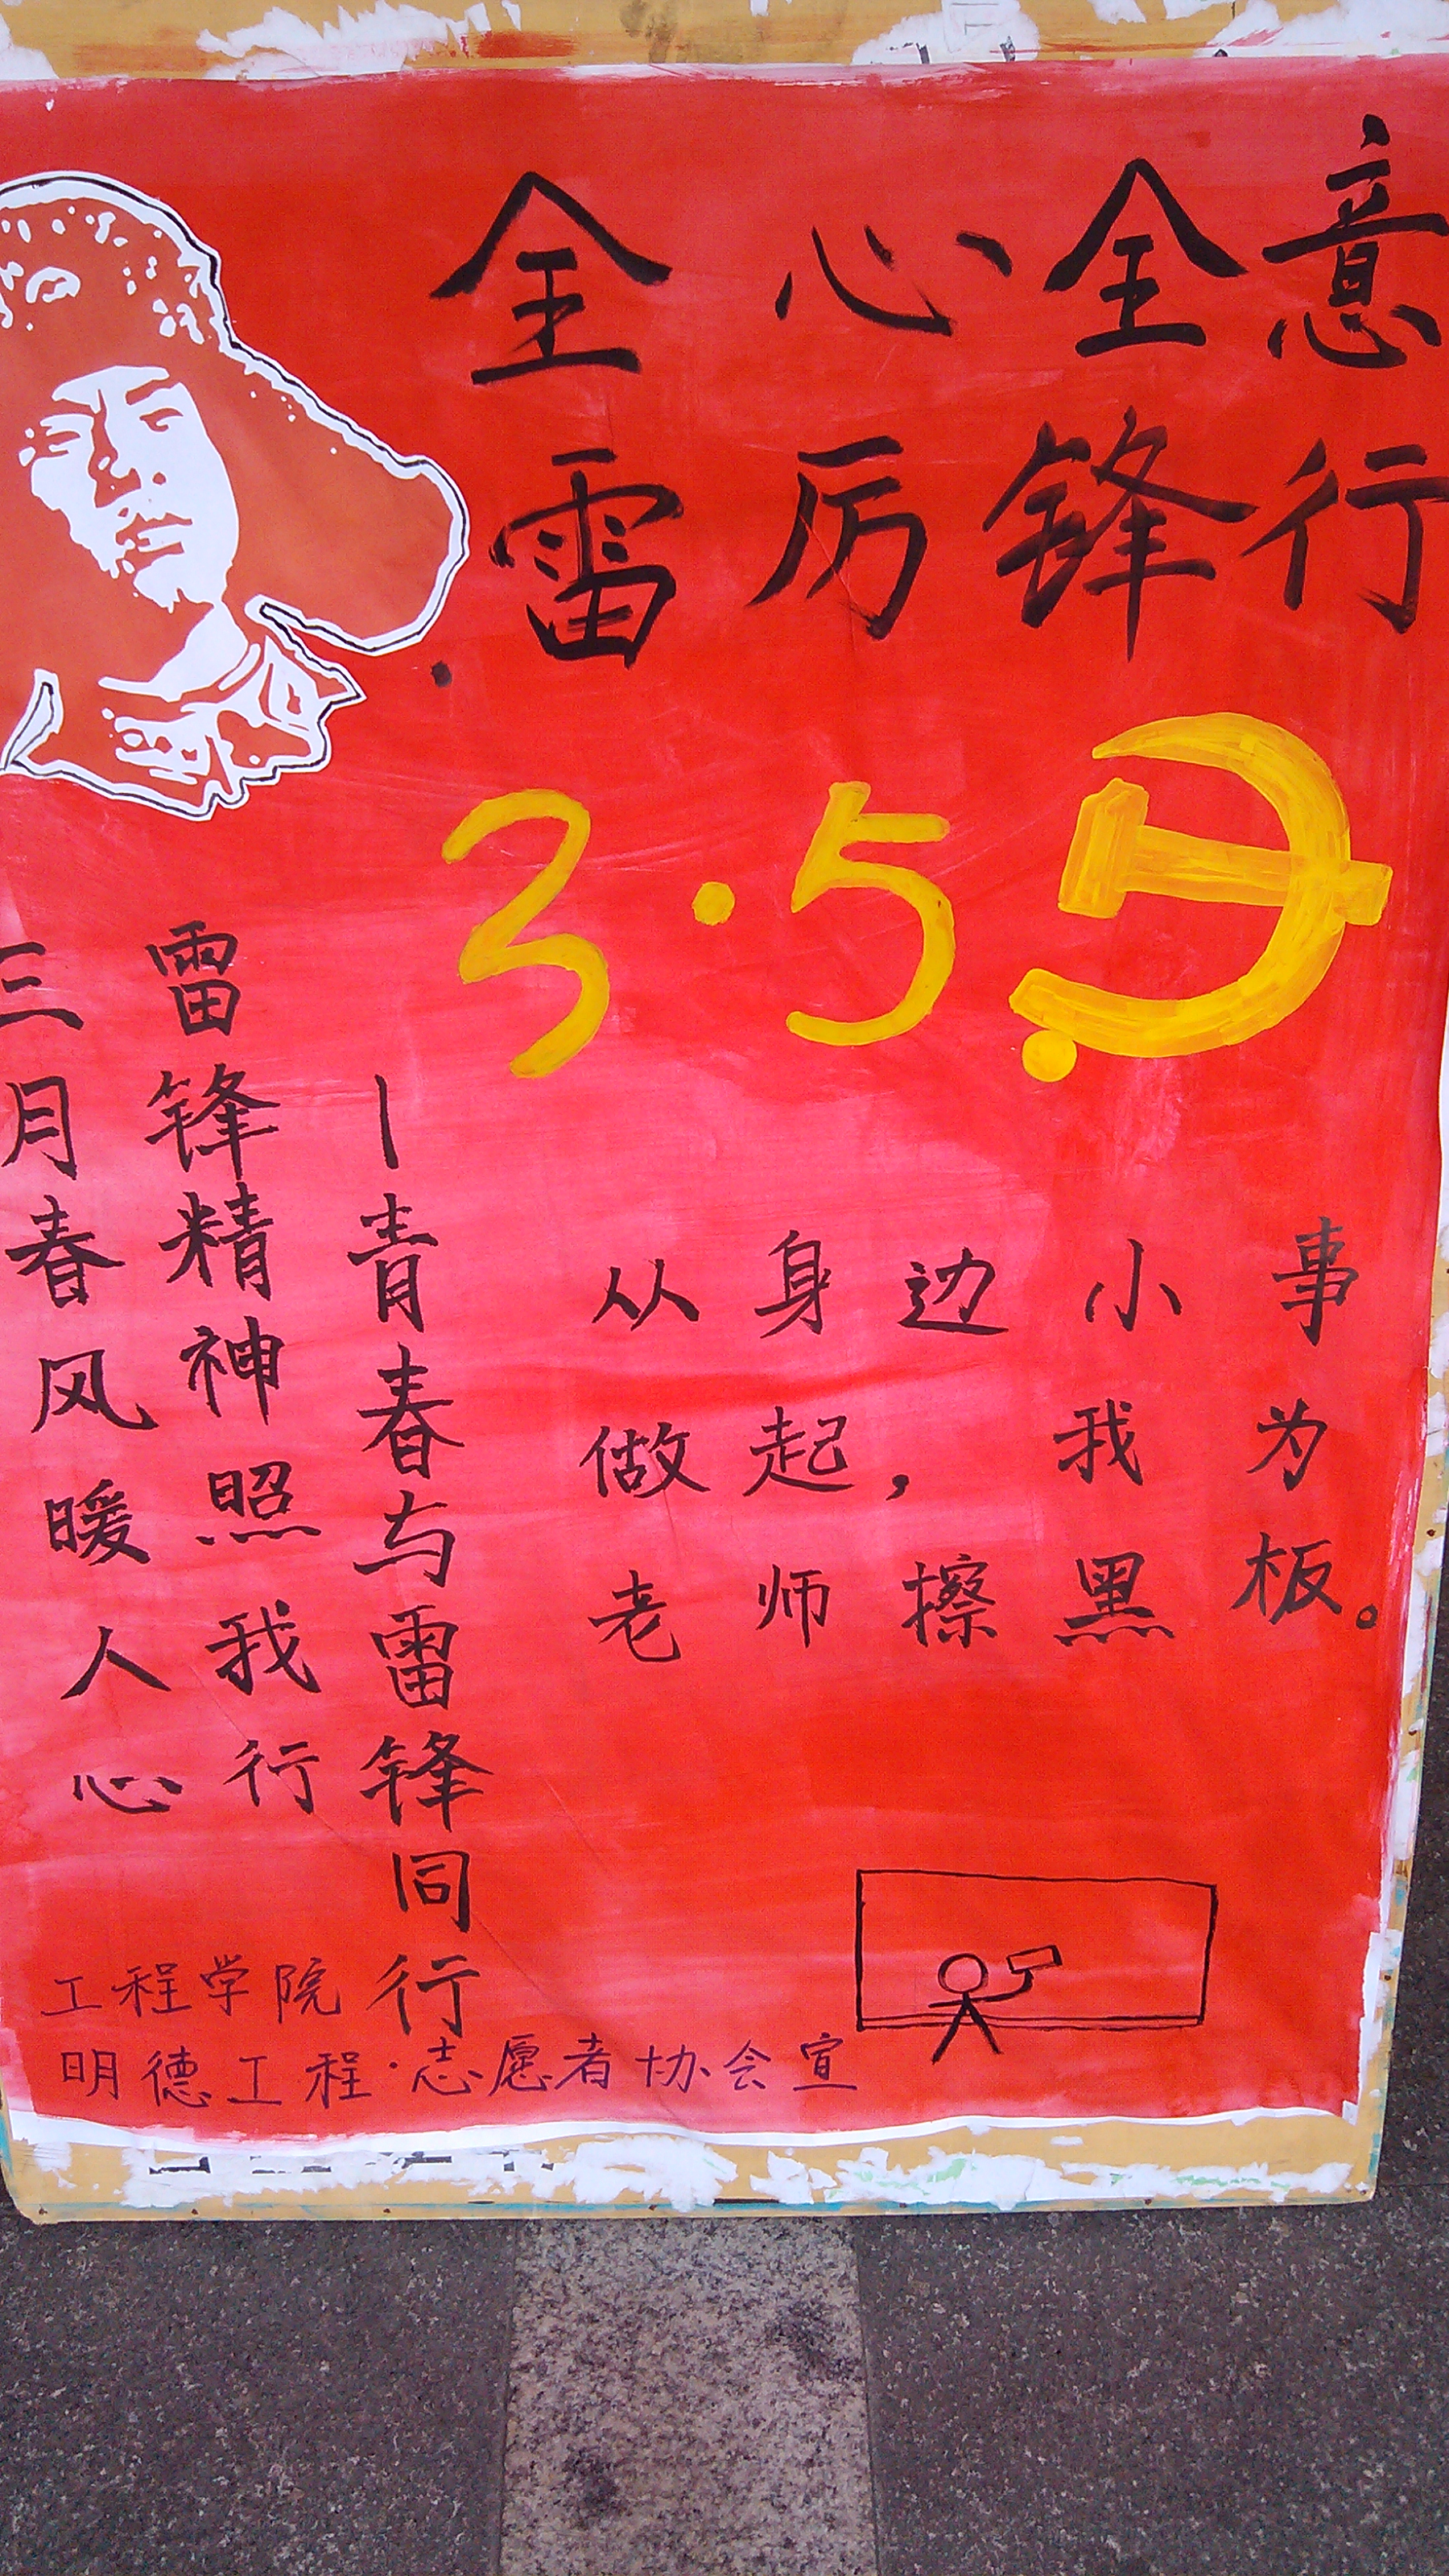 全心全意
雷厉锋行
3·5
三月春风暖人心
雷锋精神照我行
—青春与雷锋同行
从身边小事
做起，我为
老师擦黑板。
工程学院
明德工程·志愿者协会宣